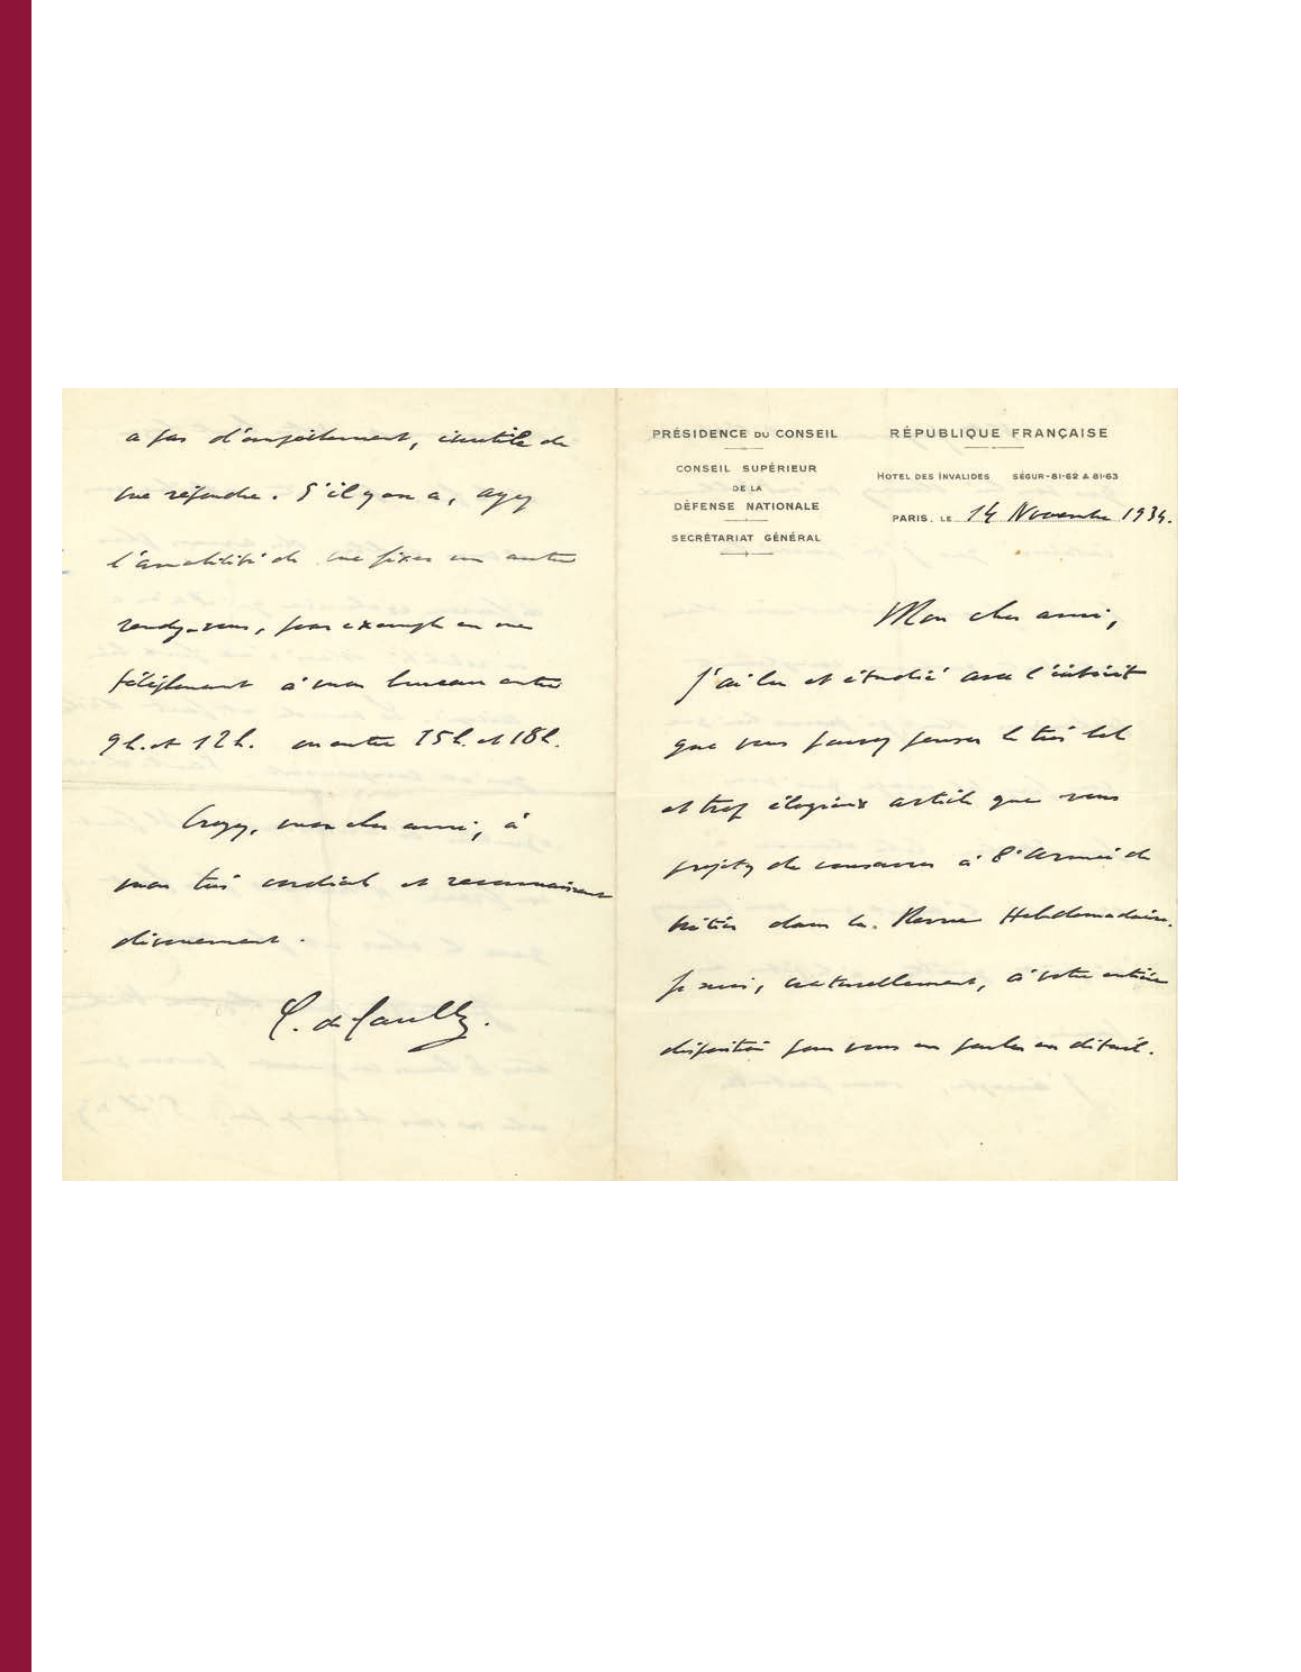 PRÉSIDENCE DU CONSEIL
CONSEIL SUPÉRIEUR
DE LA
DÉFENSE NATIONALE
SECRÉTARIAT GÉNÉRAL
RÉPUBLIQUE FRANÇAISE
HOTEL DES INVALIDES SÉGUR-81-62 & 81-63
PARIS, LE 14 Novembre 1934.
Mon cher ami,
J'ai lu et étudié avec l'intérêt
que vous pouvez penser le très bel
et trop élogieux article que vous
projetez de consacrer à l'Armée de
métier dans la Revue Hebdomadaire.
Je suis, naturellement, à votre entière
disposition pour vous en parler en détail.
a pas d'empêchement, inutile de
me répondre. S'il y en a, ayez
l'amabilité de me fixer un autre
rendez-vous, par exemple en me
téléphonant à mon bureau entre
9h. et 12h. ou entre 15h. et 18h.
Croyez, mon cher ami, à
mon très cordial et reconnaissant
dévouement.
C. de Gaulle.